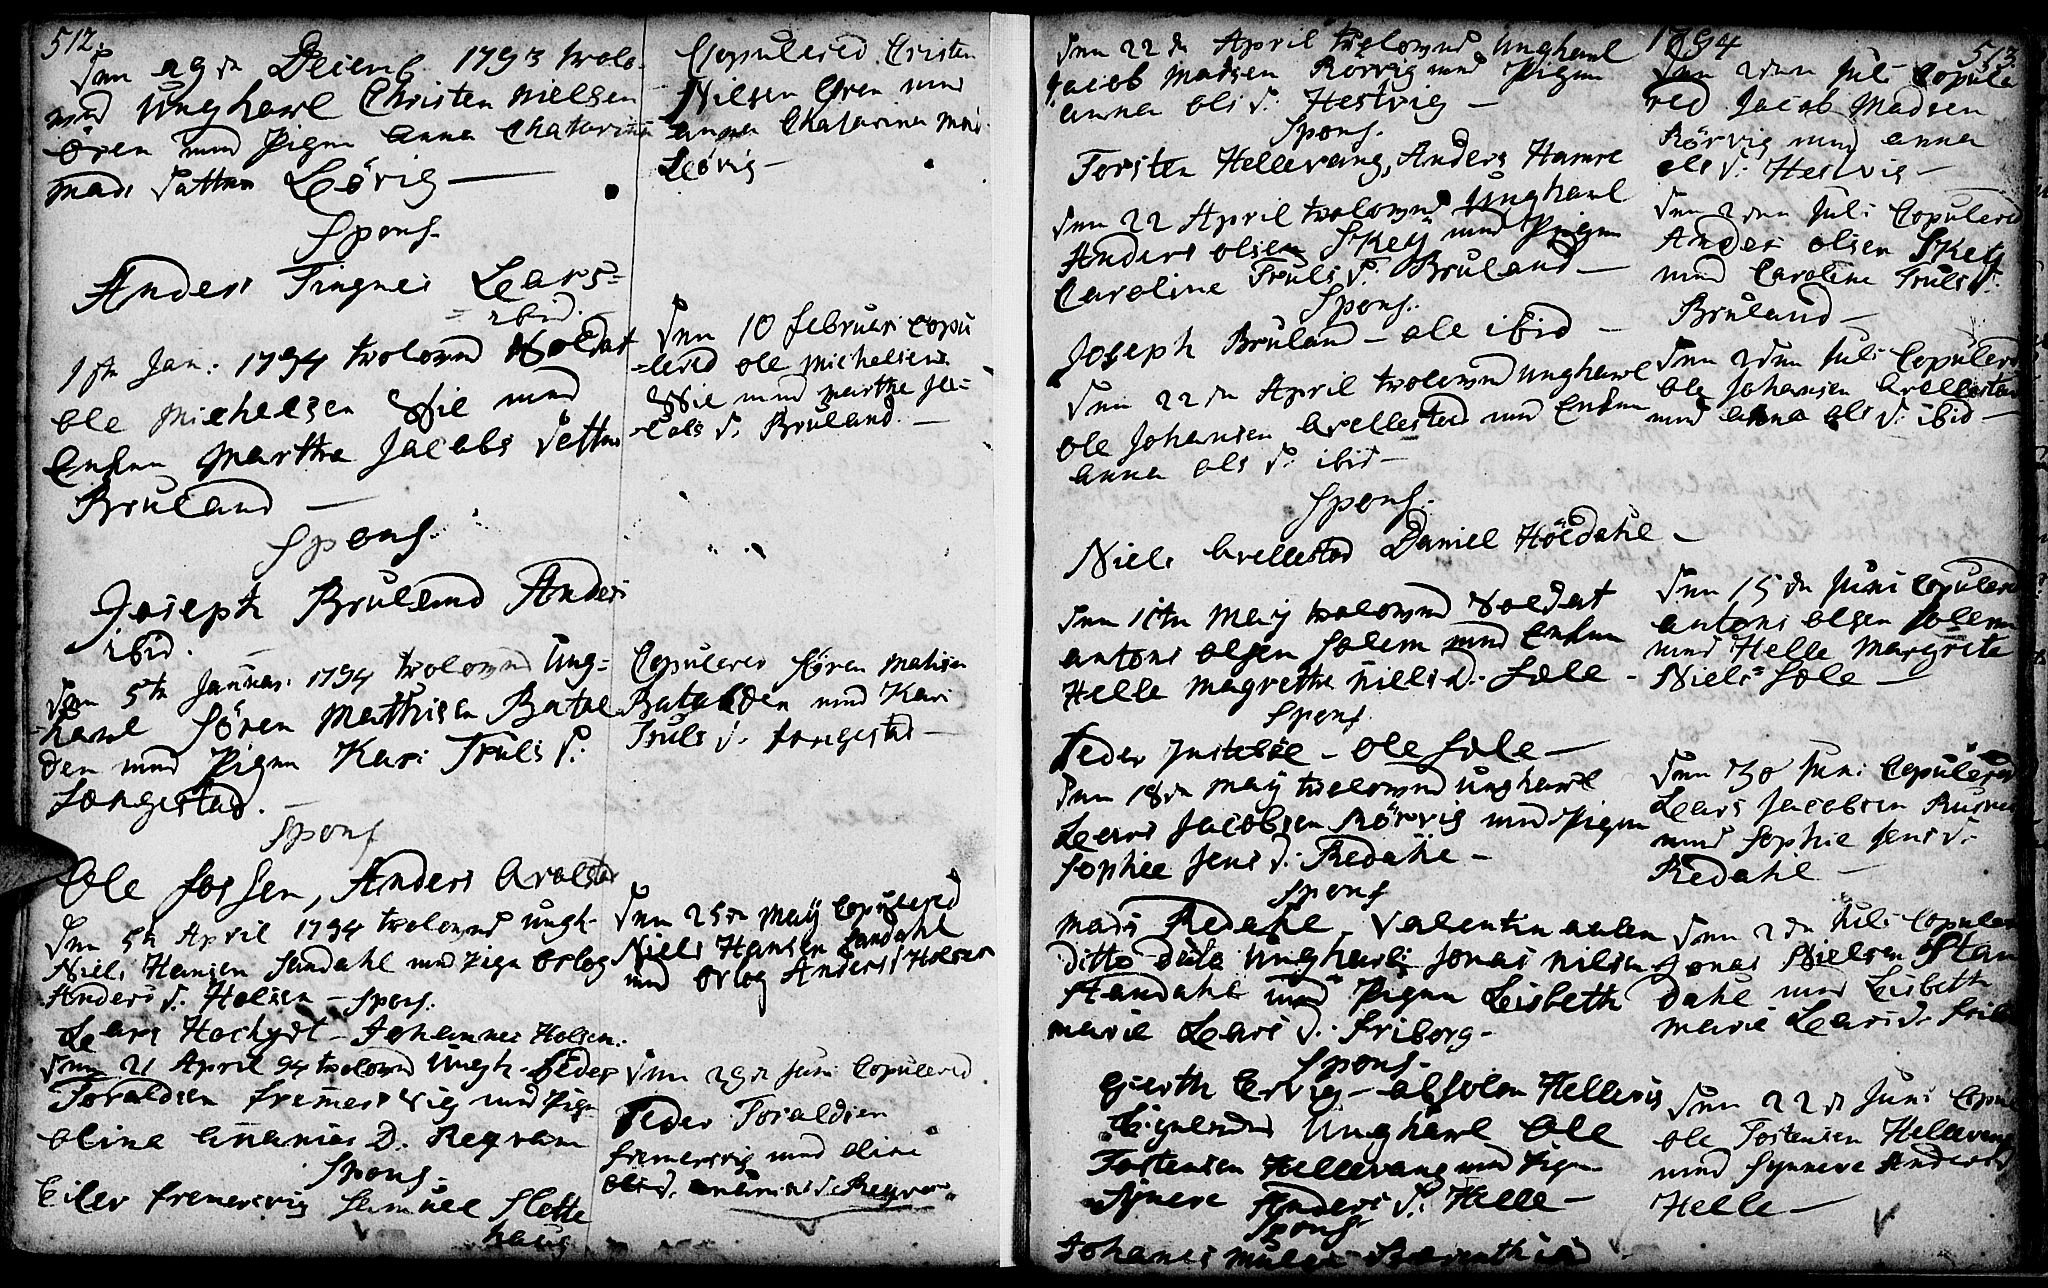 512.
Den 29de Decemb. 1793 trolo-
ved Ungkarl Christen Nielsen
Ören med Pigen Anna Chatarina
Mads Datter Leövig —
Spons.
Anders Tingnes Lears=
= ibid.
1ste Jan. 1794 trolovved Soldat
Ole Michelsen Wie med
Enken Marthe Jacobs Datter
Bruland —
Spons.
Joseph Bruland Anders
ibid. —
Den 5te Januar. 1794 trolovved Ung=
-karl Sören Mathisen Batal
den med Pigen Kari Truls D.
Longestad. —
Spons
Ole Fossen, Anders Arelstad
Den 5te April 1794 trolovved Ungk.
Niels Hansen Sandahl med Pign Orlog
Anders D. Holsen — Spons.
Lears Hochydt — Johannes Holsen.
Den 21 April 94 trolovved Ungk. Peder
Toraldsen Fremersvig med Pign
Olina Ananias D. Reqvam
Spons.
Eiler Fremersvig Samuel Slette
haug
Copulered Cristen
Nilsen Ören med
Anna Chatarina Mads.
Leövig —
Den 10 Februari Copu
-lered Ole Michelsen
Wie med Marthe Ja-
-cobs D. Bruland. —
Copulered Sören Matisen
Batalden med Kari
Truls D. Longestad —
Den 25de May Copulered
Niels Hansen Sandahl
med Orlog Anders D Holsen
Den 29de Juni Copulered
Peder Toraldsen
Fremersvig med Olina
Ananias D. Reqvam.
Den 22de April trolovved Ungkarl
Jacob Madsen Rörvig med Pigen
Anna Ols D. Hestvig —
Spons.
Torsten Hellevang, Anders Hamre
Den 22 April trolovved Ungkarl
Anders Olsen Skey med Pigen
Caroline Truls D. Bruland —
Spons.
Joseph Bruland — Ole ibid —
Den 22de April trolovved Ungkarl
Ole Johansen Arellestad med Enken
Anna Ols D. ibid —
Spons.
Niels Arellestad Daniel Höldahl —
Den 11te May trolovved Soldat
Antoni Olsen Solem med Enken
Helle Magrethe Niels D. Sole -
Spons
Peder Insteböe — Ole Sole —
Den 18de May trolovved Ungkarl
Lears Jacobsen Rörvig med Pigen
Sophie Jens D. Redahl —
Spons
Mads Redahl Valentin
Ditto dato Ungkarl Jonas Nilsen
Standahl med Pigen Lisbeth
Marie Lears D. Friborg —
Spons.
Gierth Ervig — Absolon Hellevig
Ungkarl Ole
Tostensen Hellevang med Pigen
Synneve Anders D. Helle —
Spons
Johanes
1794
513.
Den 2den Juli Copule
red Jacob Madsen
Rörvig med Anna
Ols D. Hestvig —
Den 2den Juli Copulered
Anders Olsen Skey
med Caroline Truls D.
Bruland —
Den 2den Juli Copulered
Ole Johansen Arellestad
med Anna Ols D. ibid —
Den 15de Juni Copulered
Antoni Olsen Solem
med Helle Margrete
Niels Sole —
Den 30 Juni Copulered
Lears Jacobsen
med Sophie Jens D.
Redahl —
Den 2de Juli Copulered
Jonas Nielsen Stan
dahl med Lisbeth
Marie Lears D.
Den 22de Juni Copul
Ole Tostensen Hellevang
med Synneve Anders D
Helle —